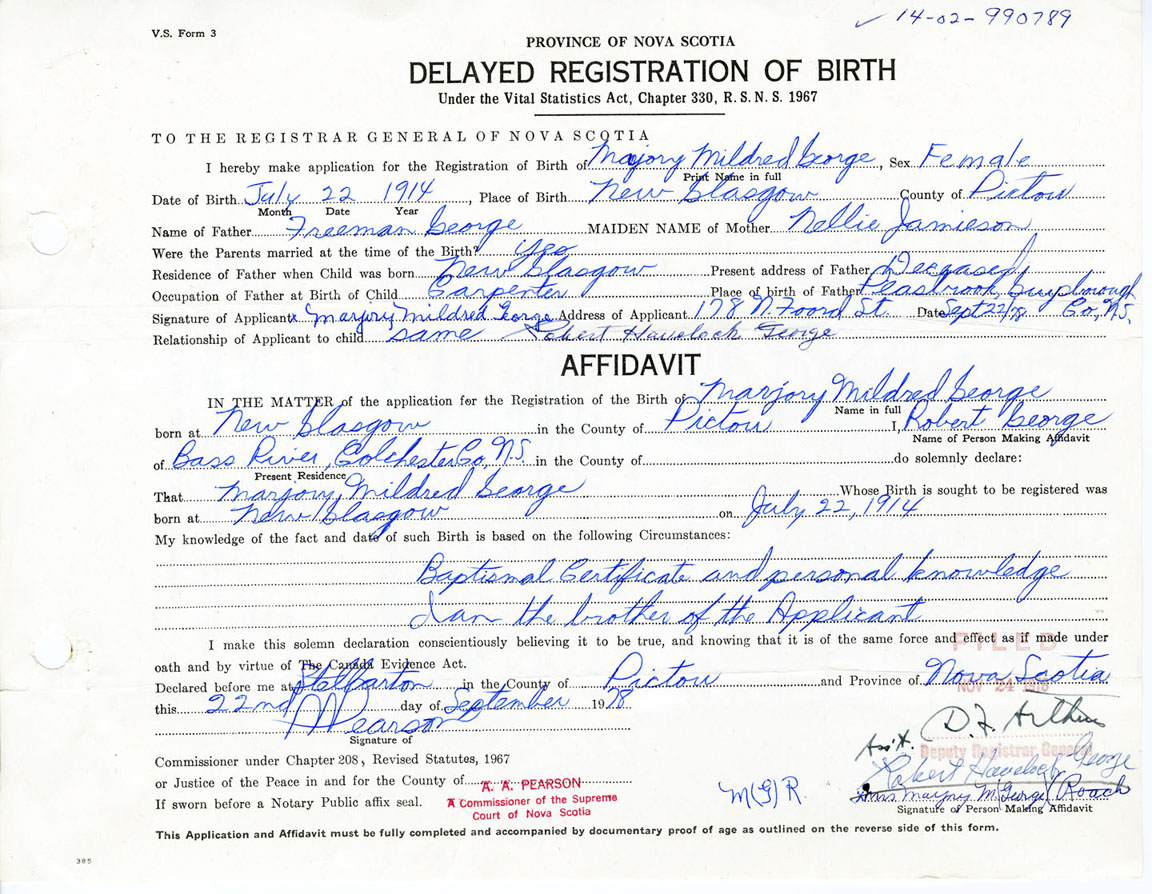 ✓ 14-02-990789
V.S. Form 3
PROVINCE OF NOVA SCOTIA
DELAYED REGISTRATION OF BIRTH
Under the Vital Statistics Act, Chapter 330, R.S.N.S. 1967
TO THE REGISTRAR GENERAL OF NOVA SCOTIA
I hereby make application for the Registration of Birth of Marjory Mildred George, Sex Female
Print Name in full
Date of Birth July 22 1914, Place of Birth New Glasgow County of Pictou
Month Date Year
Name of Father Freeman George MAIDEN NAME of Mother Nellie Jamieson
Were the Parents married at the time of the Birth? yes
Residence of Father when Child was born New Glasgow Present address of Father Deceased
Occupation of Father at Birth of Child Carpenter Place of birth of Father Peasbrook, Guysborough Co, N.S.
Signature of Applicant x Marjory Mildred George Address of Applicant 178 N. Foord St. Date Sept 22/78
Relationship of Applicant to child same Robert Havelock George
AFFIDAVIT
IN THE MATTER of the application for the Registration of the Birth of Marjory Mildred George
Name in full
born at New Glasgow in the County of Pictou I, Robert George
Name of Person Making Affidavit
of Bass River, Colchester Co, N.S. in the County of do solemnly declare:
Present Residence
That Marjory Mildred George Whose Birth is sought to be registered was
born at New Glasgow on July 22, 1914
My knowledge of the fact and date of such Birth is based on the following Circumstances:
Baptismal Certificate and personal knowledge
I am the brother of the Applicant
I make this solemn declaration conscientiously believing it to be true, and knowing that it is of the same force and effect as if made under
FILED
oath and by virtue of The Canada Evidence Act.
Declared before me at Stellarton in the County of Pictou and Province of Nova Scotia
NOV 24 1978
this 22nd day of September 1978
A Pearson
Signature of
D. F. Arthur
Ass't. Deputy Registrar General
Commissioner under Chapter 208, Revised Statutes, 1967
Robert Havelock George
or Justice of the Peace in and for the County of A. A. PEARSON
M(G)R
Mrs Marjory M (George) Roach
If sworn before a Notary Public affix seal. A Commissioner of the Supreme
Court of Nova Scotia
Signature of Person Making Affidavit
This Application and Affidavit must be fully completed and accompanied by documentary proof of age as outlined on the reverse side of this form.
385